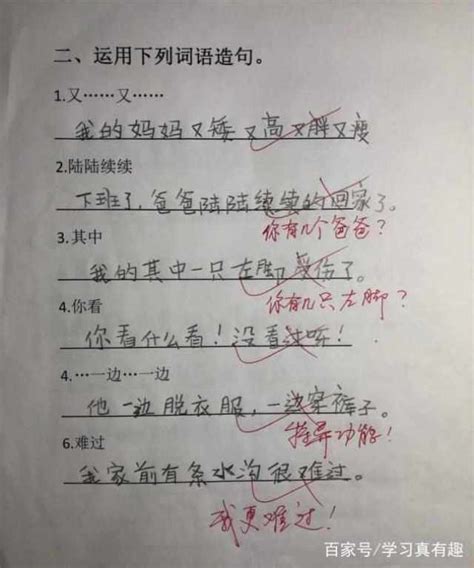 二、运用下列词语造句。
1.又……又……
我的妈妈又矮又高又胖又瘦
2.陆陆续续
下班了，爸爸陆陆续续的回家了。
你有几个爸爸？
3.其中
我的其中一只左脚受伤了。
你有几只左脚？
4.你看
你看什么看！没看过呀！
4.…一边…一边
他一边脱衣服，一边穿裤子。
特异功能！
6.难过
我家前有条水沟很难过。
我更难过！
百家号/学习真有趣